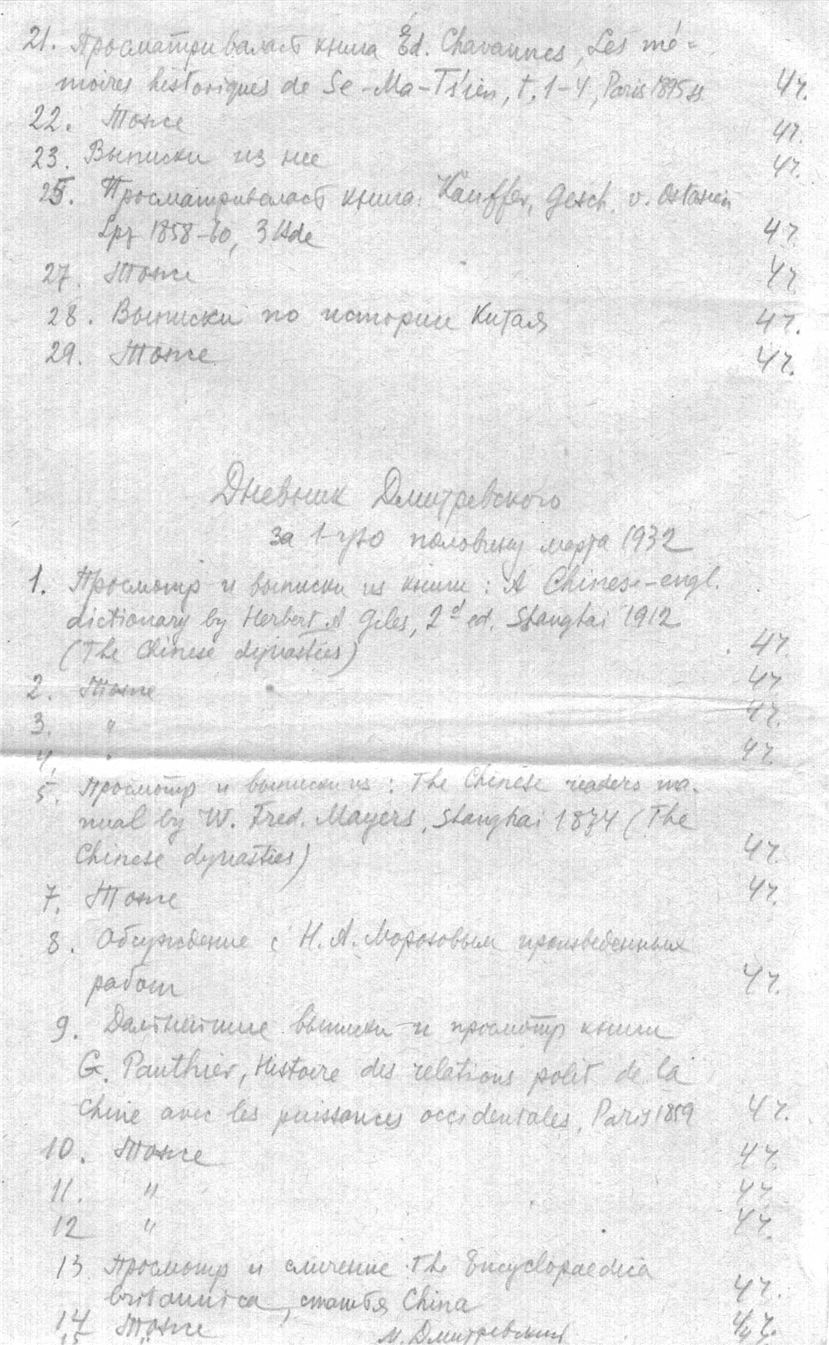 21. Просматривалась книга Ed. Chavannes, Les mé-
moires historiques de Se-Ma-Ts'ien, t. 1-4, Paris 1895 4 ч.
22. Тоже 4 ч.
23. Выписки из нее 4 ч.
25. Просматривалась книга: Kauffer, Gesch. v. Ostasien
Lpz 1858-60, 3 Bde 4 ч.
27. Тоже 4 ч.
28. Выписки по истории Китая 4 ч.
29. Тоже 4 ч.
Дневник Дмитревского
за 1-ую половину марта 1932
1. Просмотр и выписки из книги: A Chinese-engl.
dictionary by Herbert A Giles, 2d ed. Shanghai 1912
(The Chinese dynasties) 4 ч.
2. Тоже 4 ч.
3. " 4 ч.
4. " 4 ч.
5. Просмотр и выписки из: The Chinese readers ma-
nual by W. Fred. Mayers, Shanghai 1874 (The
Chinese dynasties) 4 ч.
7. Тоже 4 ч.
8. Обсуждение с Н. А. Морозовым произведенных
работ 4 ч.
9. Дальнейшие выписки и просмотр книги
G. Pauthier, Histoire des relations polit de la
Chine avec les puissances occidentales, Paris 1859 4 ч.
10. Тоже 4 ч.
11. " 4 ч.
12 " 4 ч.
13 Просмотр и сличение The Encyclopaedica
britannica, статья China 4 ч.
14 Тоже 4 ч.
15 " М. Дмитревский 4 ч.